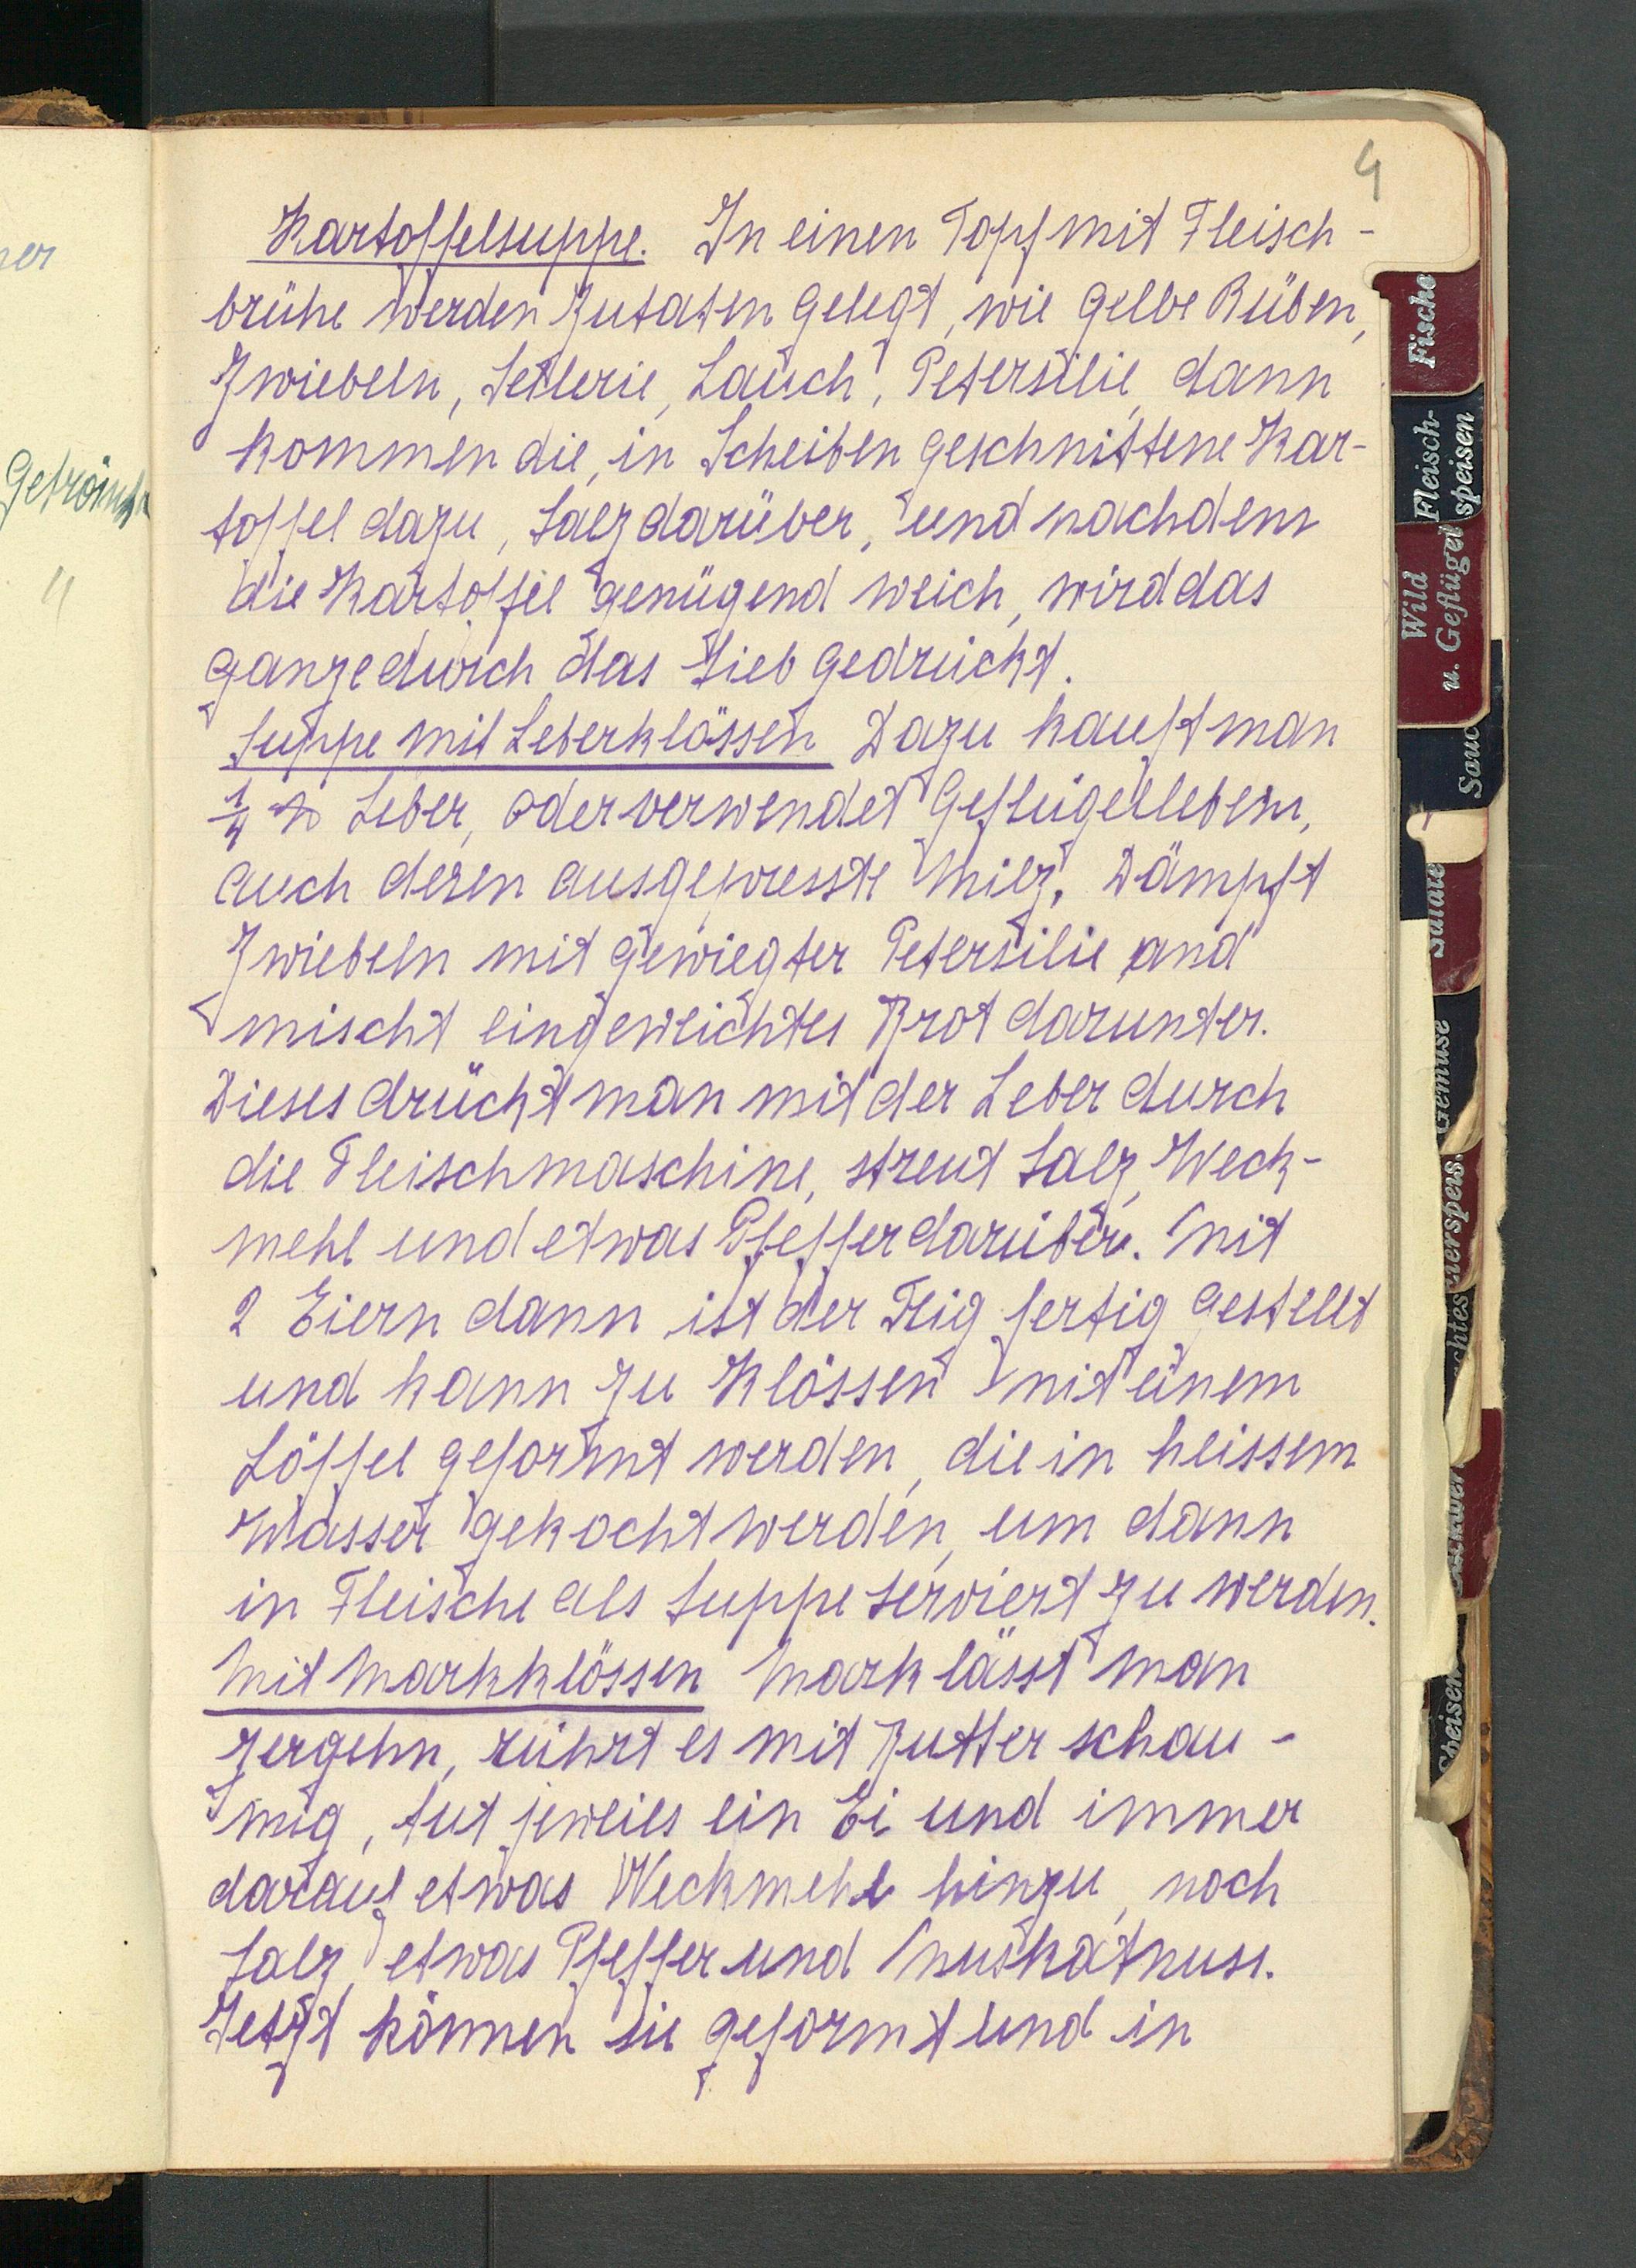 4
Kartoffelsuppe. In einen Topf mit Fleisch-
brühe werden Zutaten gelegt, wie gelbe Rüben,
Zwiebeln, Sellerie, Lauch, Petersilie, dann
kommen die, in Scheiben geschnittene Kar-
toffel dazu, Salz darüber, und nachdem
die Kartoffel genügend weich, wird das
ganze durch das Sieb gedrückt.
Suppe mit Leberklössen Dazu kauft man
1/4 ℔ Leber, oder verwendet Geflügellebern,
auch deren ausgepresste Milz. Dämpft
Zwiebeln mit gewiegter Petersilie und
mischt eingeweichtes Brot darunter.
Dieses drückt man mit der Leber durch
die Fleischmaschine, streut Salz, Weck-
mehl und etwas Pfeffer darüber. Mit
2 Eiern dann ist der Teig fertig gestellt
und kann zu Klössen mit einem
Löffel geformt werden, die in heissem
Wasser gekocht werden, um dann
in Fleische als Suppe serviert zu werden.
Mit Markklössen Mark lässt man
zergehn, rührt es mit Butter schau-
mig, tut jeweils ein Ei und immer
darauf etwas Weckmehl hinzu, noch
Salz, etwas Pfeffer und Muskatnuss.
Jetzt können sie geformt und in
Fische
Fleisch-
speisen
Wild
u. Geflügel
Sauc
Salate
Gemüse
eierspeis.
chtes
Speisen
er
4